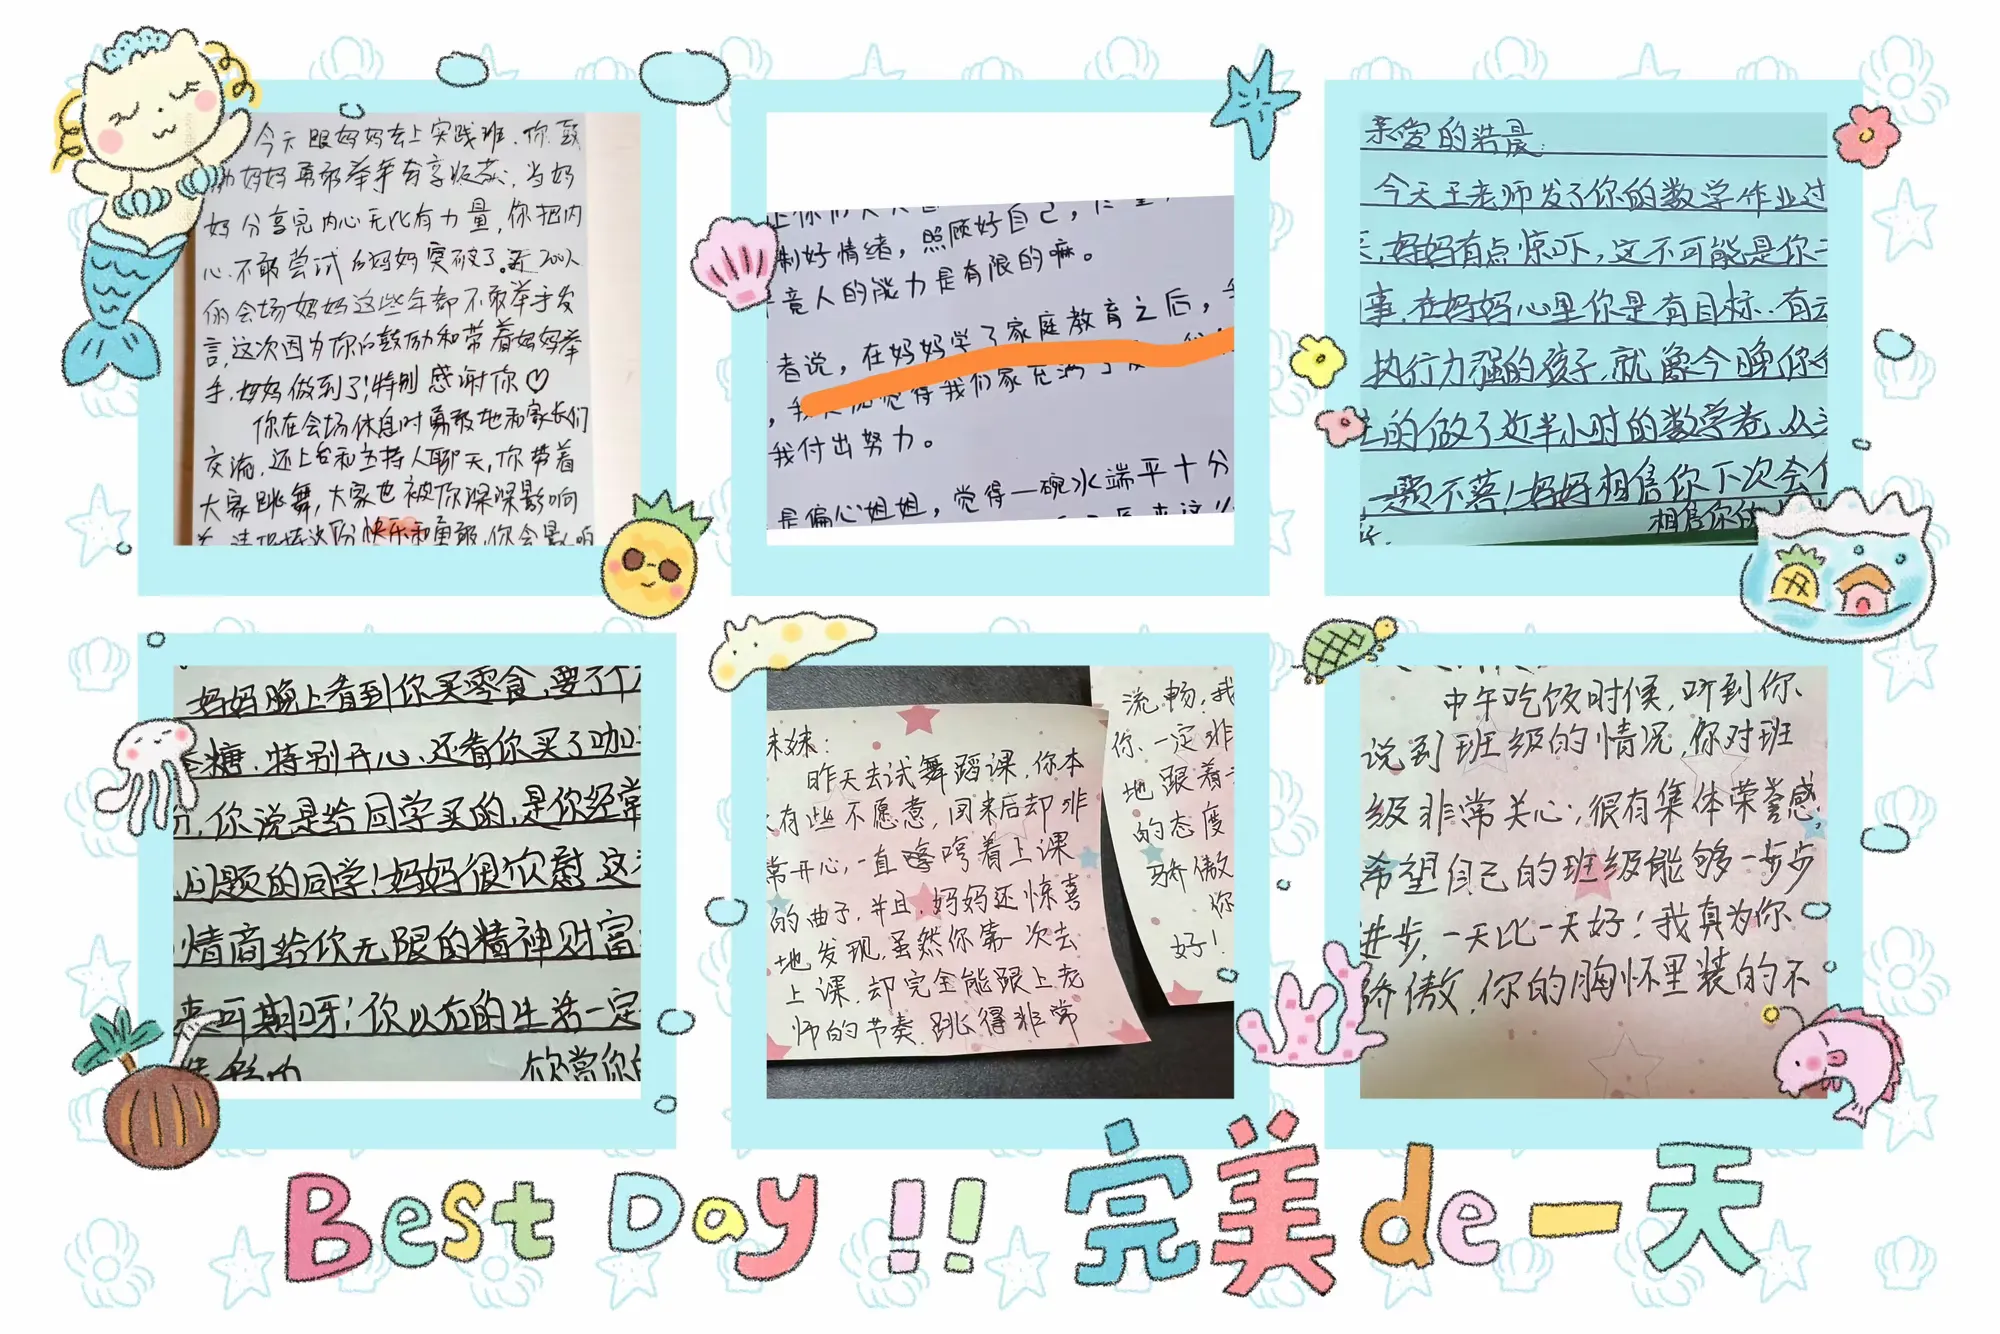 今天跟妈妈去上实践班,你鼓
励妈妈勇敢举手分享收获,当妈
妈分享完内心无比有力量,你把内
心不敢尝试的妈妈突破了。近200人
的会场妈妈这些年都不敢举手发
言,这次因为你的鼓励和带着妈妈举
手,妈妈做到了!特别感谢你♡
你在会场休息时勇敢地和家长们
交流,还上台和主持人聊天,你带着
大家跳舞,大家也被你深深影响
快乐和勇敢,你会
制好情绪,照顾好自己,
竟人的能力是有限的嘛。
者说,在妈妈学了家庭教育之后,
觉得我们家充满了
我付出努力。
是偏心姐姐,觉得一碗水端平十分
亲爱的浩晨:
今天王老师发了你的数学作业过
,妈妈有点惊吓,这不可能是你
事,在妈妈心里你是有目标.有
执行力强的孩子,就像今晚你
的做了近半小时的数学卷,从
一题不落!妈妈相信你下次会
相信你的
妈妈晚上看到你买零食,要了个
糖,特别开心,还看你买了咖
,你说是给同学买的,是你经常
问题的同学!妈妈很欣慰,这
情商给你无限的精神财富
来可期呀!你以后的生活一定
欣赏你的
妹妹:
昨天去试舞蹈课,你本
有些不愿意,回来后却非
常开心,一直哼哼着上课
的曲子,并且,妈妈还惊喜
地发现,虽然你第一次去
上课,却完全能跟上老
师的节奏,跳得非常
流畅,我
你,一定非
地跟着
的态度
骄傲
你
好!
中午吃饭时候,听到你
说到班级的情况,你对班
级非常关心;很有集体荣誉感,
希望自己的班级能够一步步
进步,一天比一天好!我真为你
骄傲,你的胸怀里装的不
Best Day!! 完美de一天